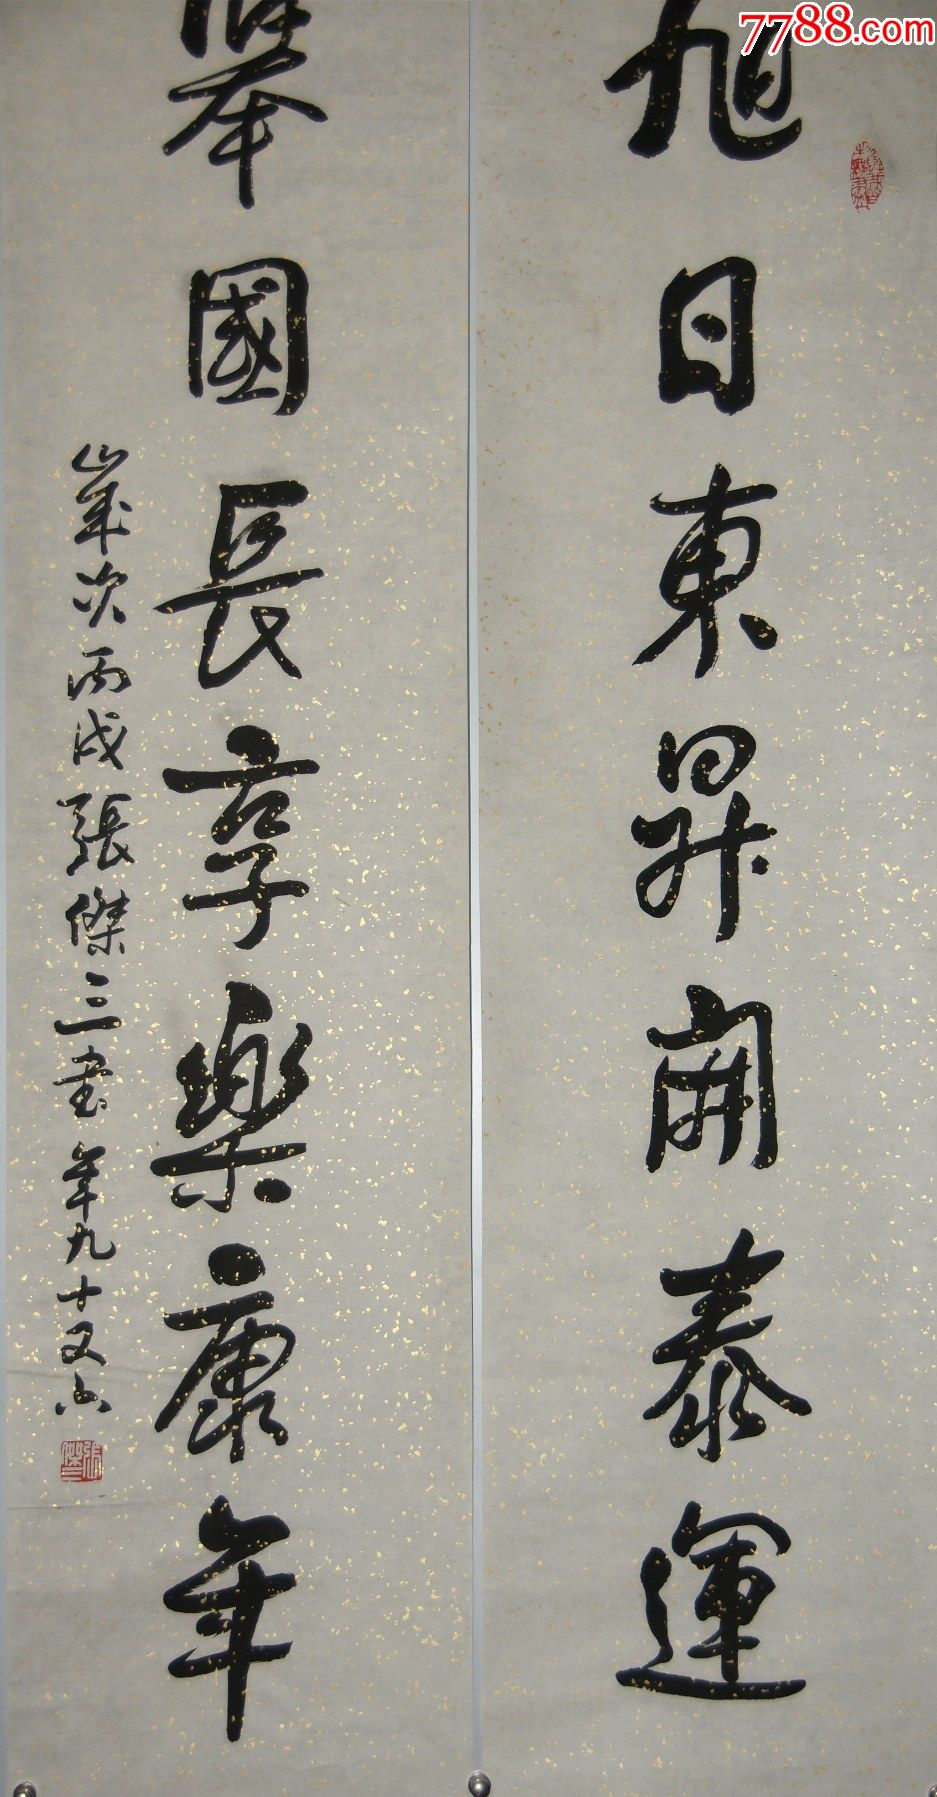 7788.com
旭日東昇開泰運
舉國長享樂康年
歲次丙戌張傑三書年九十又六
張傑三